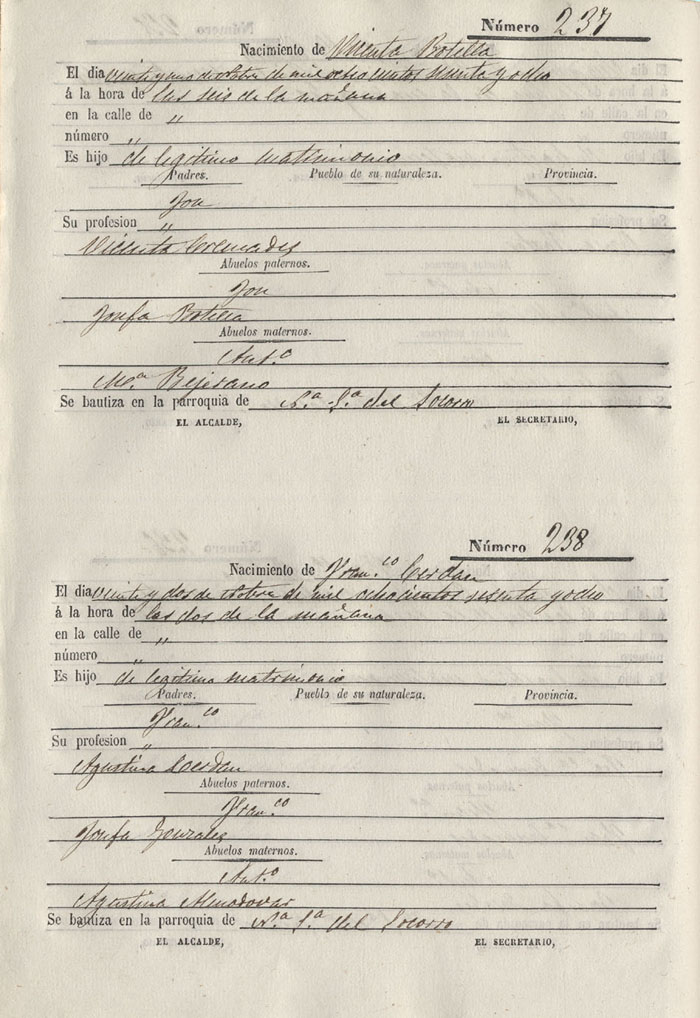 Número 237
Nacimiento de Vicenta Botella
El dia veinte y uno de Octbre de mil ochocientos sesenta y ocho
á la hora de las seis de la mañana
en la calle de „
número „
Es hijo de legitimo matrimonio
Padres. Pueblo de su naturaleza. Provincia.
Jose
Su profesion „
Vicenta Cremades
Abuelos paternos.
Jose
Josefa Botella
Abuelos maternos.
Ant.º
M.ª Bejerano
Se bautiza en la parroquia de N.ª S.ª del Socorro
EL ALCALDE, EL SECRETARIO,
Número 238
Nacimiento de Fran.co Cerdan
El dia veinte y dos de Octbre de mil ochocientos sesenta y ocho
á la hora de las dos de la mañana
en la calle de „
número „
Es hijo de legitimo matrimonio
Padres. Pueblo de su naturaleza. Provincia.
Fran.co
Su profesion „
Agustina Cerdan
Abuelos paternos.
Fran.co
Josefa Gonzalez
Abuelos maternos.
Ant.º
Agustina Almodovar
Se bautiza en la parroquia de N.ª S.ª del Socorro
EL ALCALDE, EL SECRETARIO,